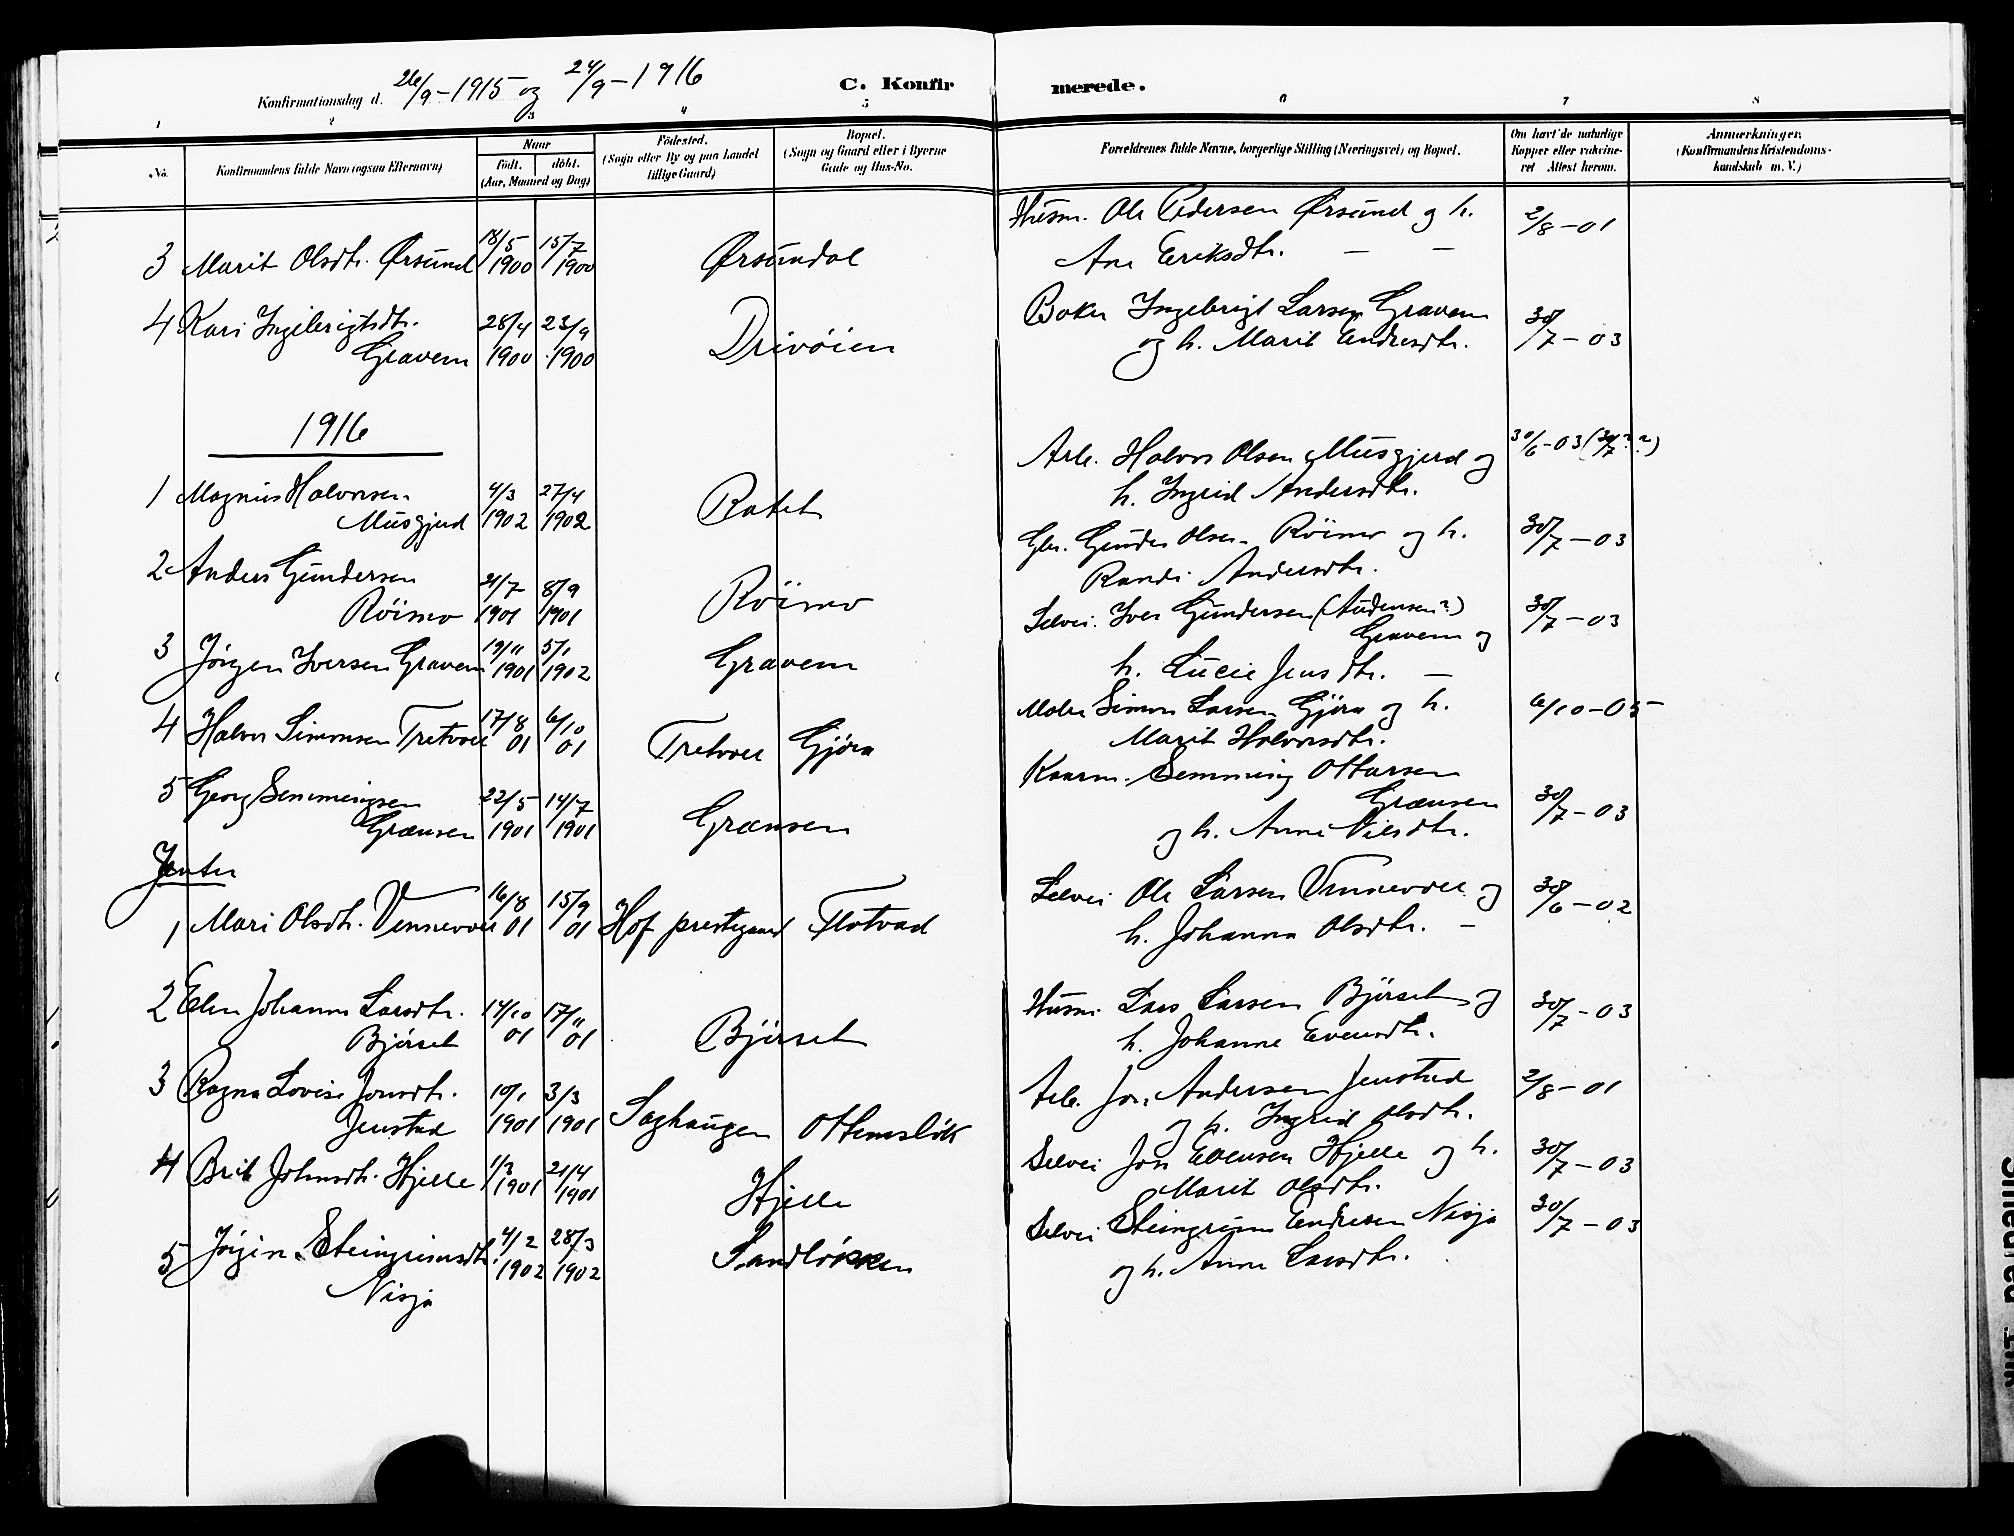 Konfirmationsdag d. 26/9-1915 og 24/9-1916
C. Konfirmerede.
1 2 3 4 5 6 7 8
No.
Konfirmandens fulde Navn (ogsaa Efternavn)
Naar
födt. döbt.
(Aar, Maaned og Dag)
Födested.
(Sogn eller By og paa Landet
tillige Gaard)
Bopæl.
(Sogn og Gaard eller i Byerne
Gade og Hus-No.
Forældrenes fulde Navne, borgerlige Stilling (Næringsvei) og Bopæl.
Om havt de naturlige
Kopper eller vakcine-
ret Attest herom.
Anmærkninger.
(Konfirmandens Kristendoms-
kundskab m. V.)
3 Marit Olsdtr. Ørsund 18/5 1900 15/7 1900 Ørsundal
Husm. Ole Pedersen Ørsund og h. 2/8-01
Ane Eriksdtr. — —
4 Kari Ingebrigtsdtr.
Gravem 28/4 1900 23/9 1900 Drivöien
Baker Ingebrigt Larsen Gravem
og h. Marit Endresdtr. 30/7-03
1916
1 Magnus Halvorsen
Musgjerd 4/3 1902 27/4 1902 Ratet
Arb. Halvor Olsen Musgjerd og 30/6-03 (30/7??)
h. Ingrid Andersdtr.
2 Anders Gundersen
Röimo 21/7 1901 8/9 1901 Röimo
Gbr. Gunder Olsen Röimo og h. 30/7-03
Randi Andersdtr.
3 Jörgen Iversen Gravem 19/11 1901 5/1 1902 Gravem
Selvei. Iver Gundersen (Audensen?) 30/7-03
Gravem og
h. Lucie Jensdtr. —
4 Halvor Simonsen Tretvoll 17/8 01 6/10 01 Tretvoll Gjöra
Maler Simon Larsen Gjöra og h. 6/10-05
Marit Halvorsdtr.
5 Georg Semmingsen
Grænsen 22/5 1901 14/7 1901 Grænsen
Kaarm. Semming Ottarsen
Grænsen 30/7-03
og h. Anne Nilsdtr.
Jenter
1 Mari Olsdtr. Vennevoll 16/8 01 15/9 01 Hof prestegaard Flotvad
Selvei Ole Larsen Vennevoll og 30/6-02
h. Johanna Olsdtr. —
2 Elen Johanne Larsdtr.
Björset 14/10 01 17/11 01 Bjørset
Husm. Lars Larsen Bjørset og 30/7-03
h. Johanne Evensdtr.
3 Ragna Lovise Jonsdtr.
Jenstad 10/1 1901 3/3 1901 Saghaugen Ottemslök
Arb. Jon Andersen Jenstad 2/8-01
og h. Ingrid Olsdtr.
4 Brit Johnsdtr. Hjelle 1/3 1901 21/4 1901 Hjelle
Selvei Jon Evensen Hjelle og h. 30/7-03
Marit Olsdtr.
5 Jögin Steingrimsdtr.
Nisja 4/2 1902 28/3 1902 Sandlökken
Selvei Steingrim Endresen Nisja 30/7-03
og h. Anne Larsdtr.